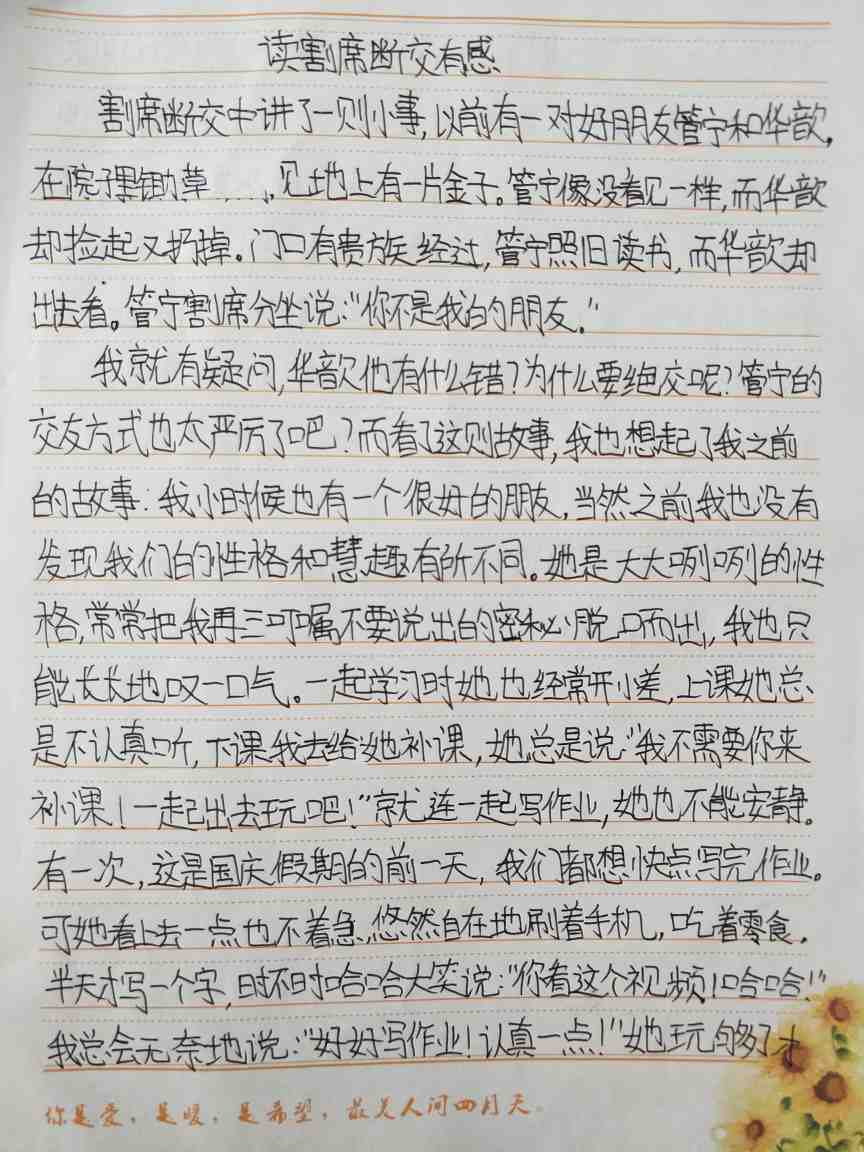 读割席断交有感
割席断交中讲了一则小事,以前有一对好朋友管宁和华歆,
在院子里锄草....,见地上有一片金子。管宁像没看见一样,而华歆
却捡起又扔掉。门口有贵族经过,管宁照旧读书,而华歆却
出去看。管宁割席分坐说:“你不是我的朋友."
我就有疑问,华歆他有什么错?为什么要绝交呢?管宁的
交友方式也太严厉了吧?而看了这则故事,我也想起了我之前
的故事:我小时候也有一个很好的朋友,当然之前我也没有
发现我们的性格和慧趣有所不同。她是大大咧咧的性
格,常常把我再三叮嘱不要说出的密秘脱口而出,我也只
能长长地叹一口气。一起学习时她也经常开小差,上课她总
是不认真听,下课我去给她补课,她总是说:“我不需要你来
补课!一起出去玩吧!”就连一起写作业,她也不能安静。
有一次,这是国庆假期的前一天,我们都想快点写完作业。
可她看上去一点也不着急,悠然自在地刷着手机,吃着零食,
半天才写一个字,时不时哈哈大笑说:“你看这个视频!哈哈!”
我总会无奈地说:“好好写作业!认真一点!”她玩够了才
你是爱,是暖,是希望,最美人间四月天。